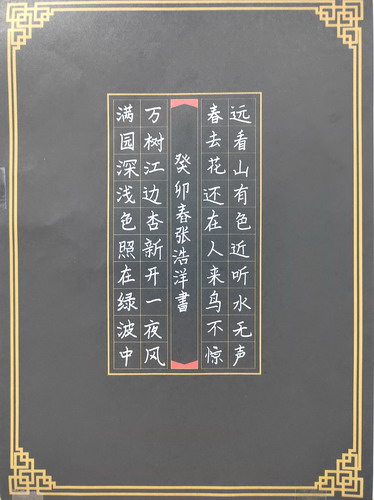 远看山有色近听水无声
春去花还在人来鸟不惊
癸卯春张浩洋书
万树江边杏新开一夜风
满园深浅色照在绿波中